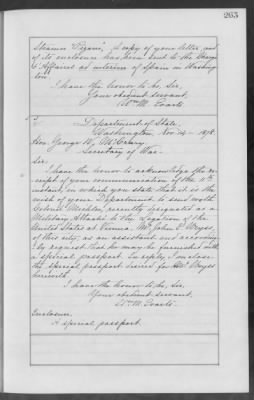 263
Steamer "Pizarro". A copy of your letter, and
of its enclosure has been sent to the Chargé
d'Affaires ad interim of Spain in Washing-
ton.
I have the honor to be, Sir,
Your obedient servant,
Wm. M. Evarts.
Department of State,
Washington, Nov. 14 - 1878.
Hon. George W. McCrary,
Secretary of War.
Sir:
I have the honor to acknowledge the re-
ceipt of your communication of the
instant, in which you state that it is the
wish of your Department to send with
Colonel recently designated as a
Military Attaché to the Legation of the
United States at Vienna, Mr. John E. Weyss,
of this city, as an assistant and accordingly
request that he may be furnished with
a special passport. In reply, I enclose
the special passport issued for Mr. Weyss
herewith.
I have the honor to be, Sir,
Your obedient servant,
Wm. M. Evarts.
Enclosure:
A special passport.